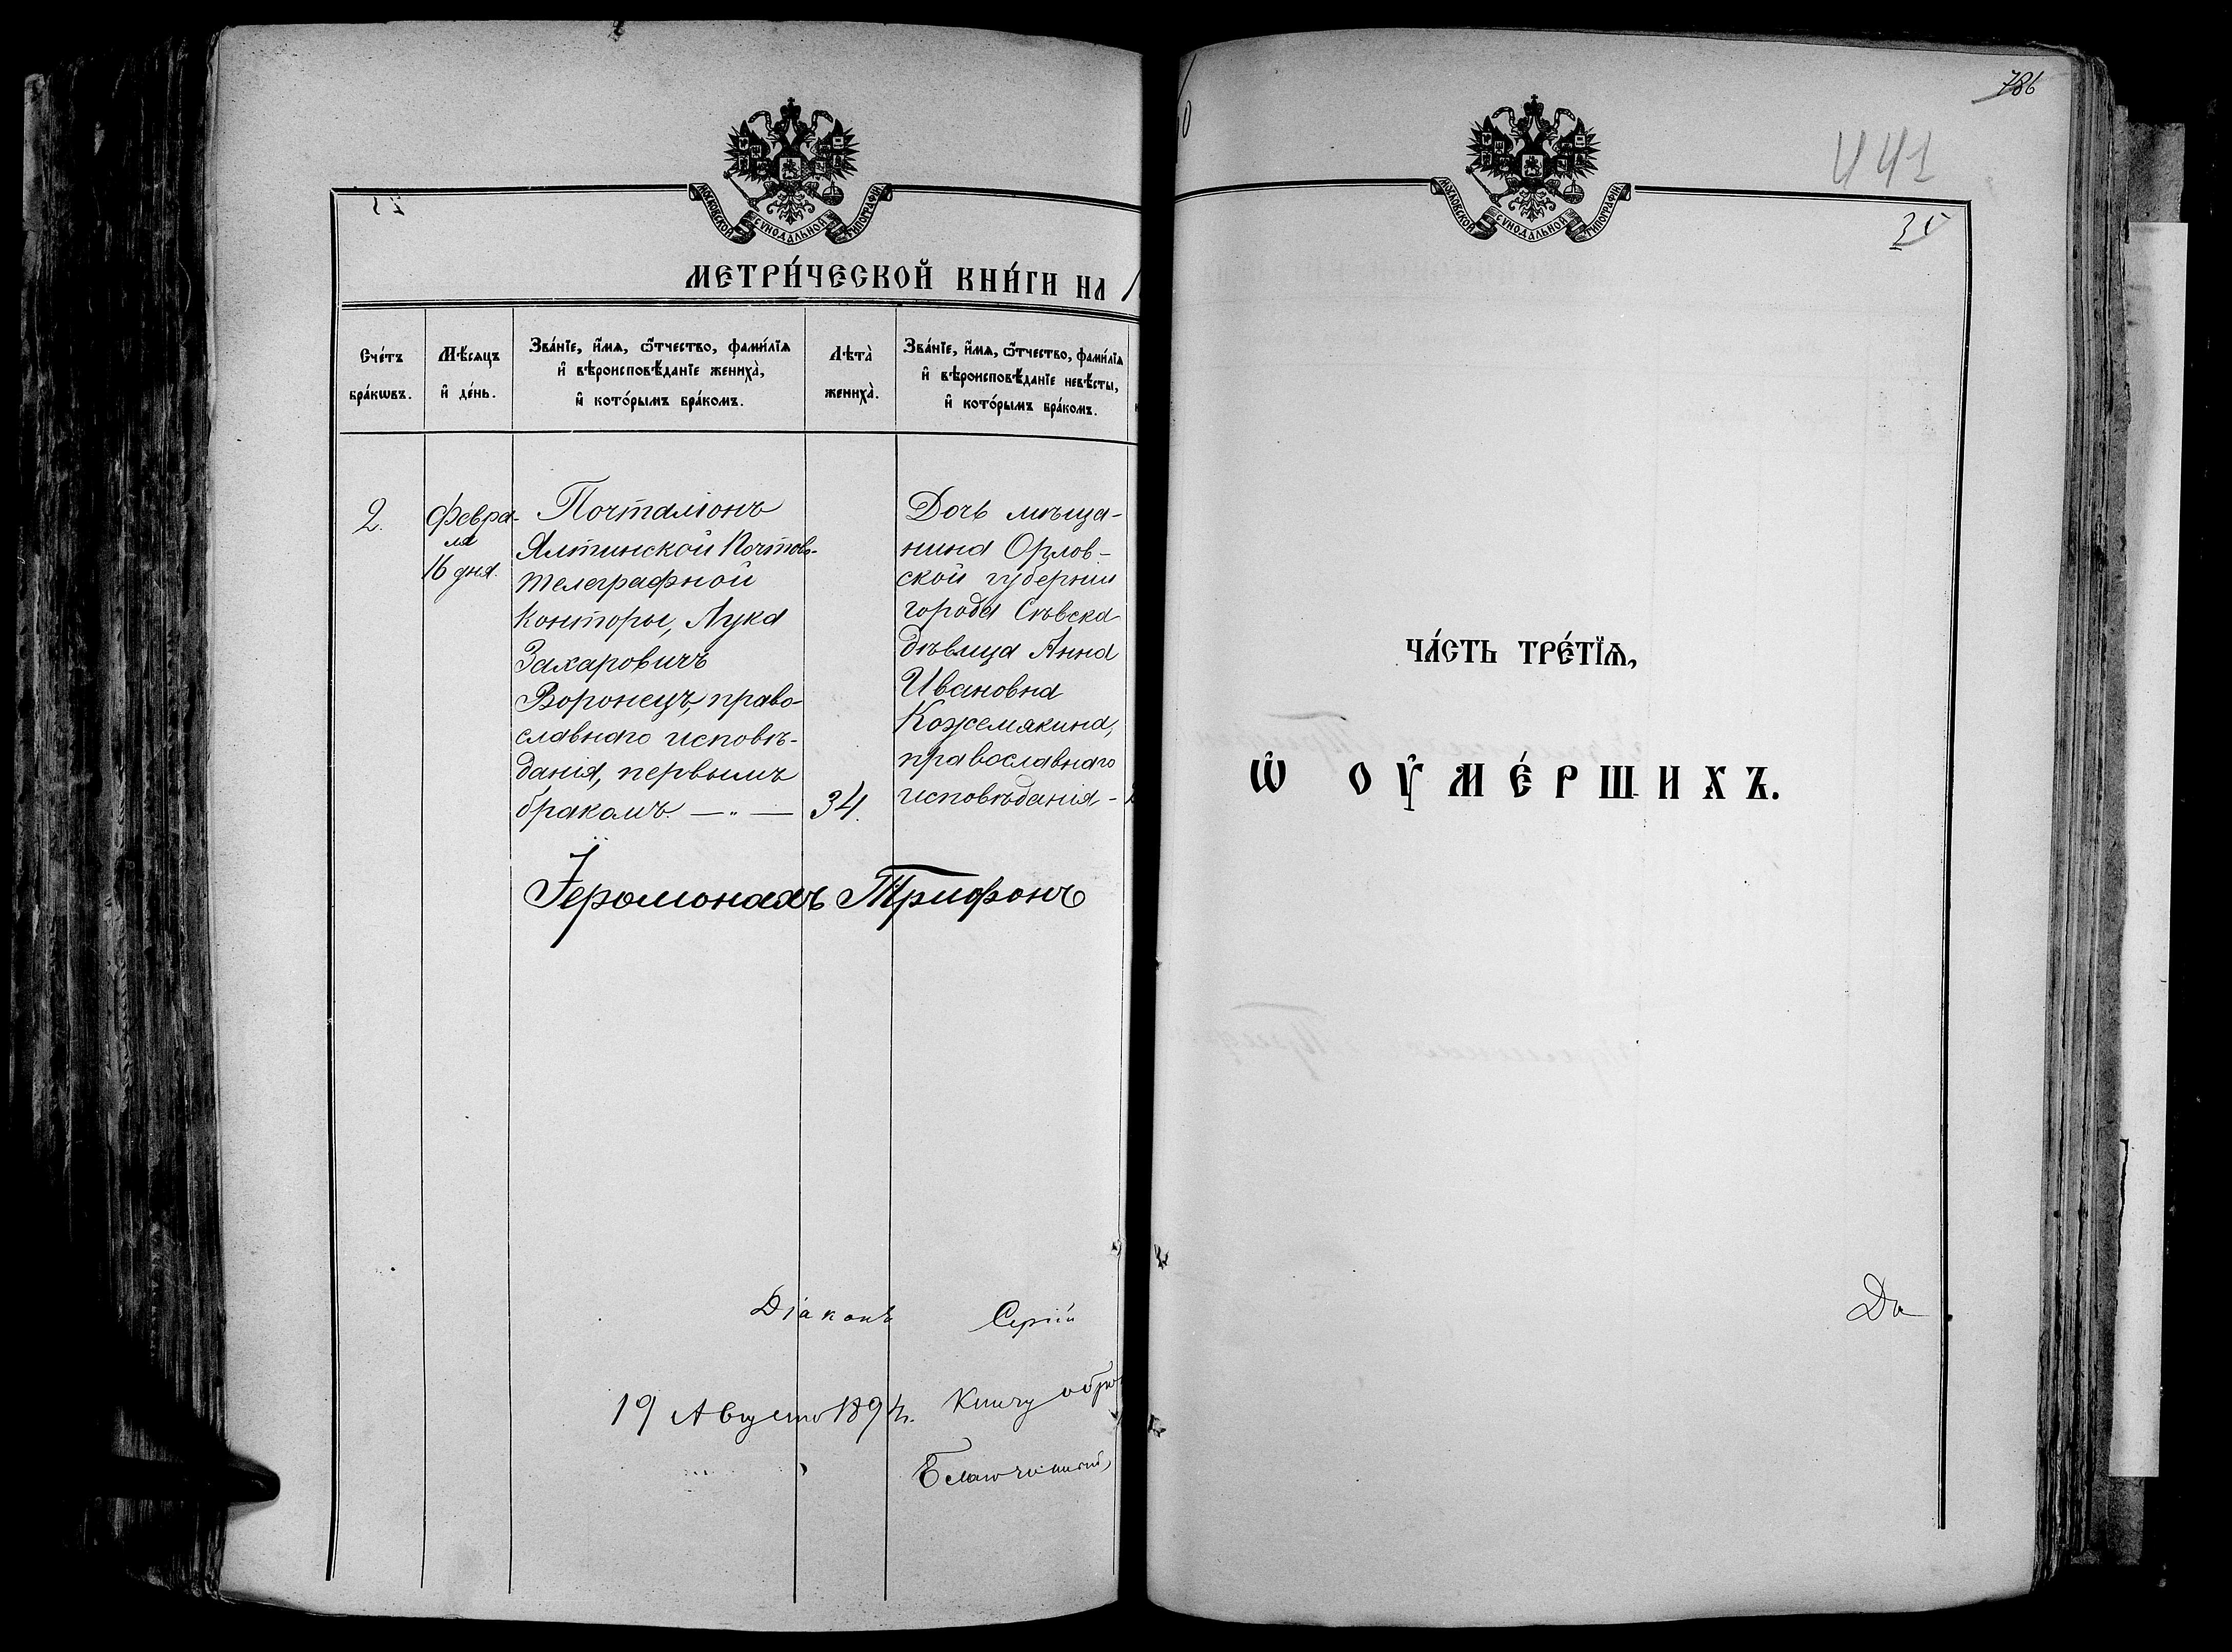 МОСКОВСКОЙ СУНОДАЛЬНОЙ ТИПОГРАФІИ
МЕТРИ́ЧЕСКОЙ КНИ́ГИ НА 1
Сче́тъ бра́кѡвъ.
Мѣ́сяцъ и҆ де́нь.
Зва́нїе, и҆́мѧ, ѻ҆́тчество, фами́лїѧ
и҆ вѣроисповѣ́данїе жениха̀,
и҆ кото́рымъ бра́комъ.
Лѣта̀ жениха̀.
Зва́нїе, и҆́мѧ, ѻ҆́тчество, фами́лїѧ
и҆ вѣроисповѣ́данїе невѣ́сты,
и҆ кото́рымъ бра́комъ.
2.
Февра-
ля
16 дня.
Почталіонъ
Ялтинской Почтово-
телеграфной
Конторы, Лука
Захаровичъ
Воронецъ, право-
славнаго исповѣ-
данія, первымъ
бракомъ. — „ —
34.
Дочь мѣща-
нина Орлов-
ской губерніи
города Сѣвска
дѣвица Анна
Ивановна
Кожемякина,
православнаго
исповѣданія -
Іеромонахъ Трифонъ
Діаконъ Сергій
19 Августа 1894 г. Книгу
786
441
МОСКОВСКОЙ СУНОДАЛЬНОЙ ТИПОГРАФІИ
ЧА́СТЬ ТРЕ́ТЇѦ,
Ѡ҆ ОУ҆МЕ́РШИХЪ.
Ді